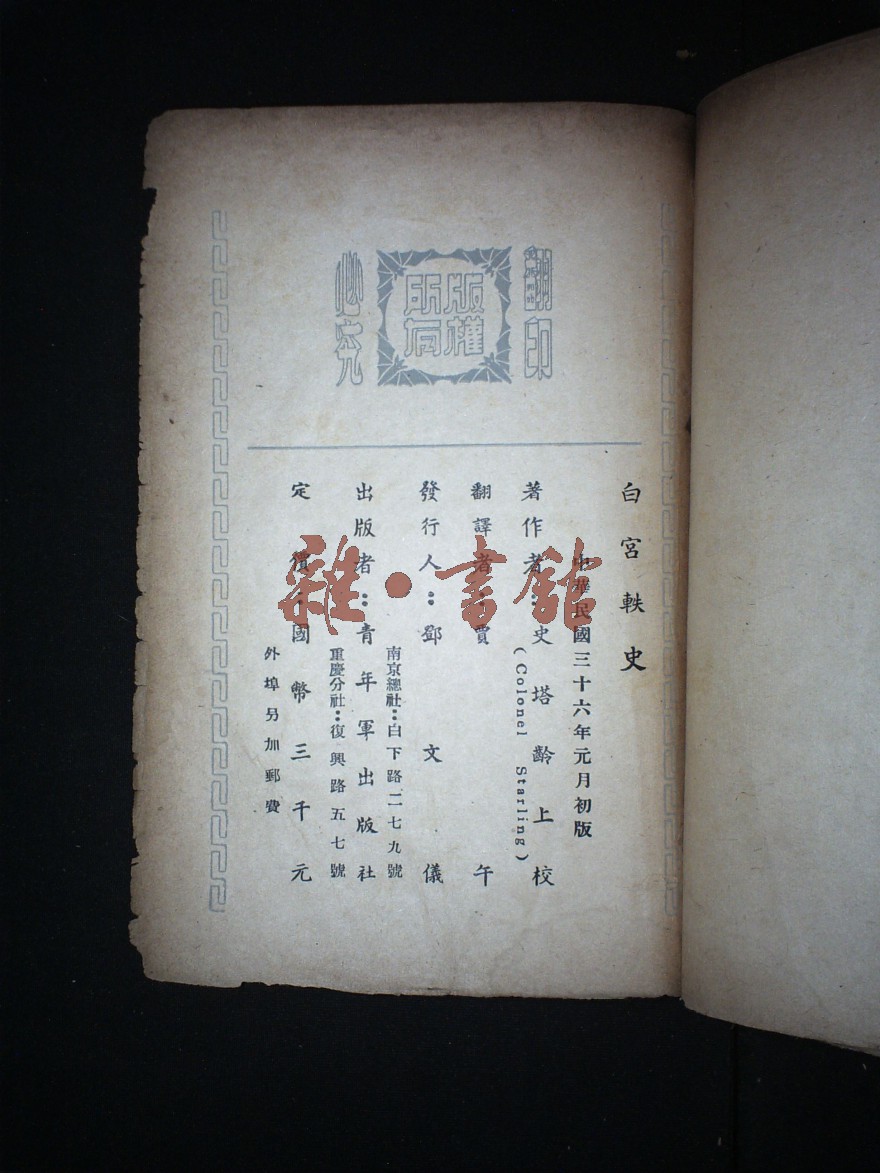 翻印
版權
所有
必究
白宮軼史
中華民國三十六年元月初版
著作者：史塔齡上校
(Colonel Starling)
翻譯者：賈午
發行人：鄧文儀
南京總社：白下路二七九號
出版者：青年軍出版社
重慶分社：復興路五七號
定價：國幣三千元
外埠另加郵費
雜·書館